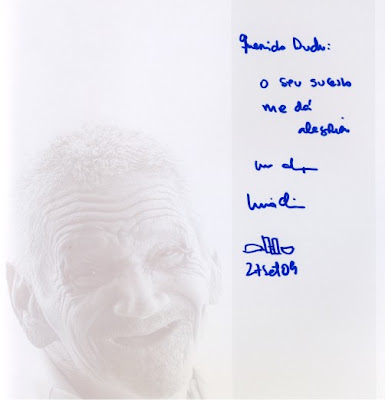 Querido Dudu:
o seu sucesso
me dá
alegria
um
27set09